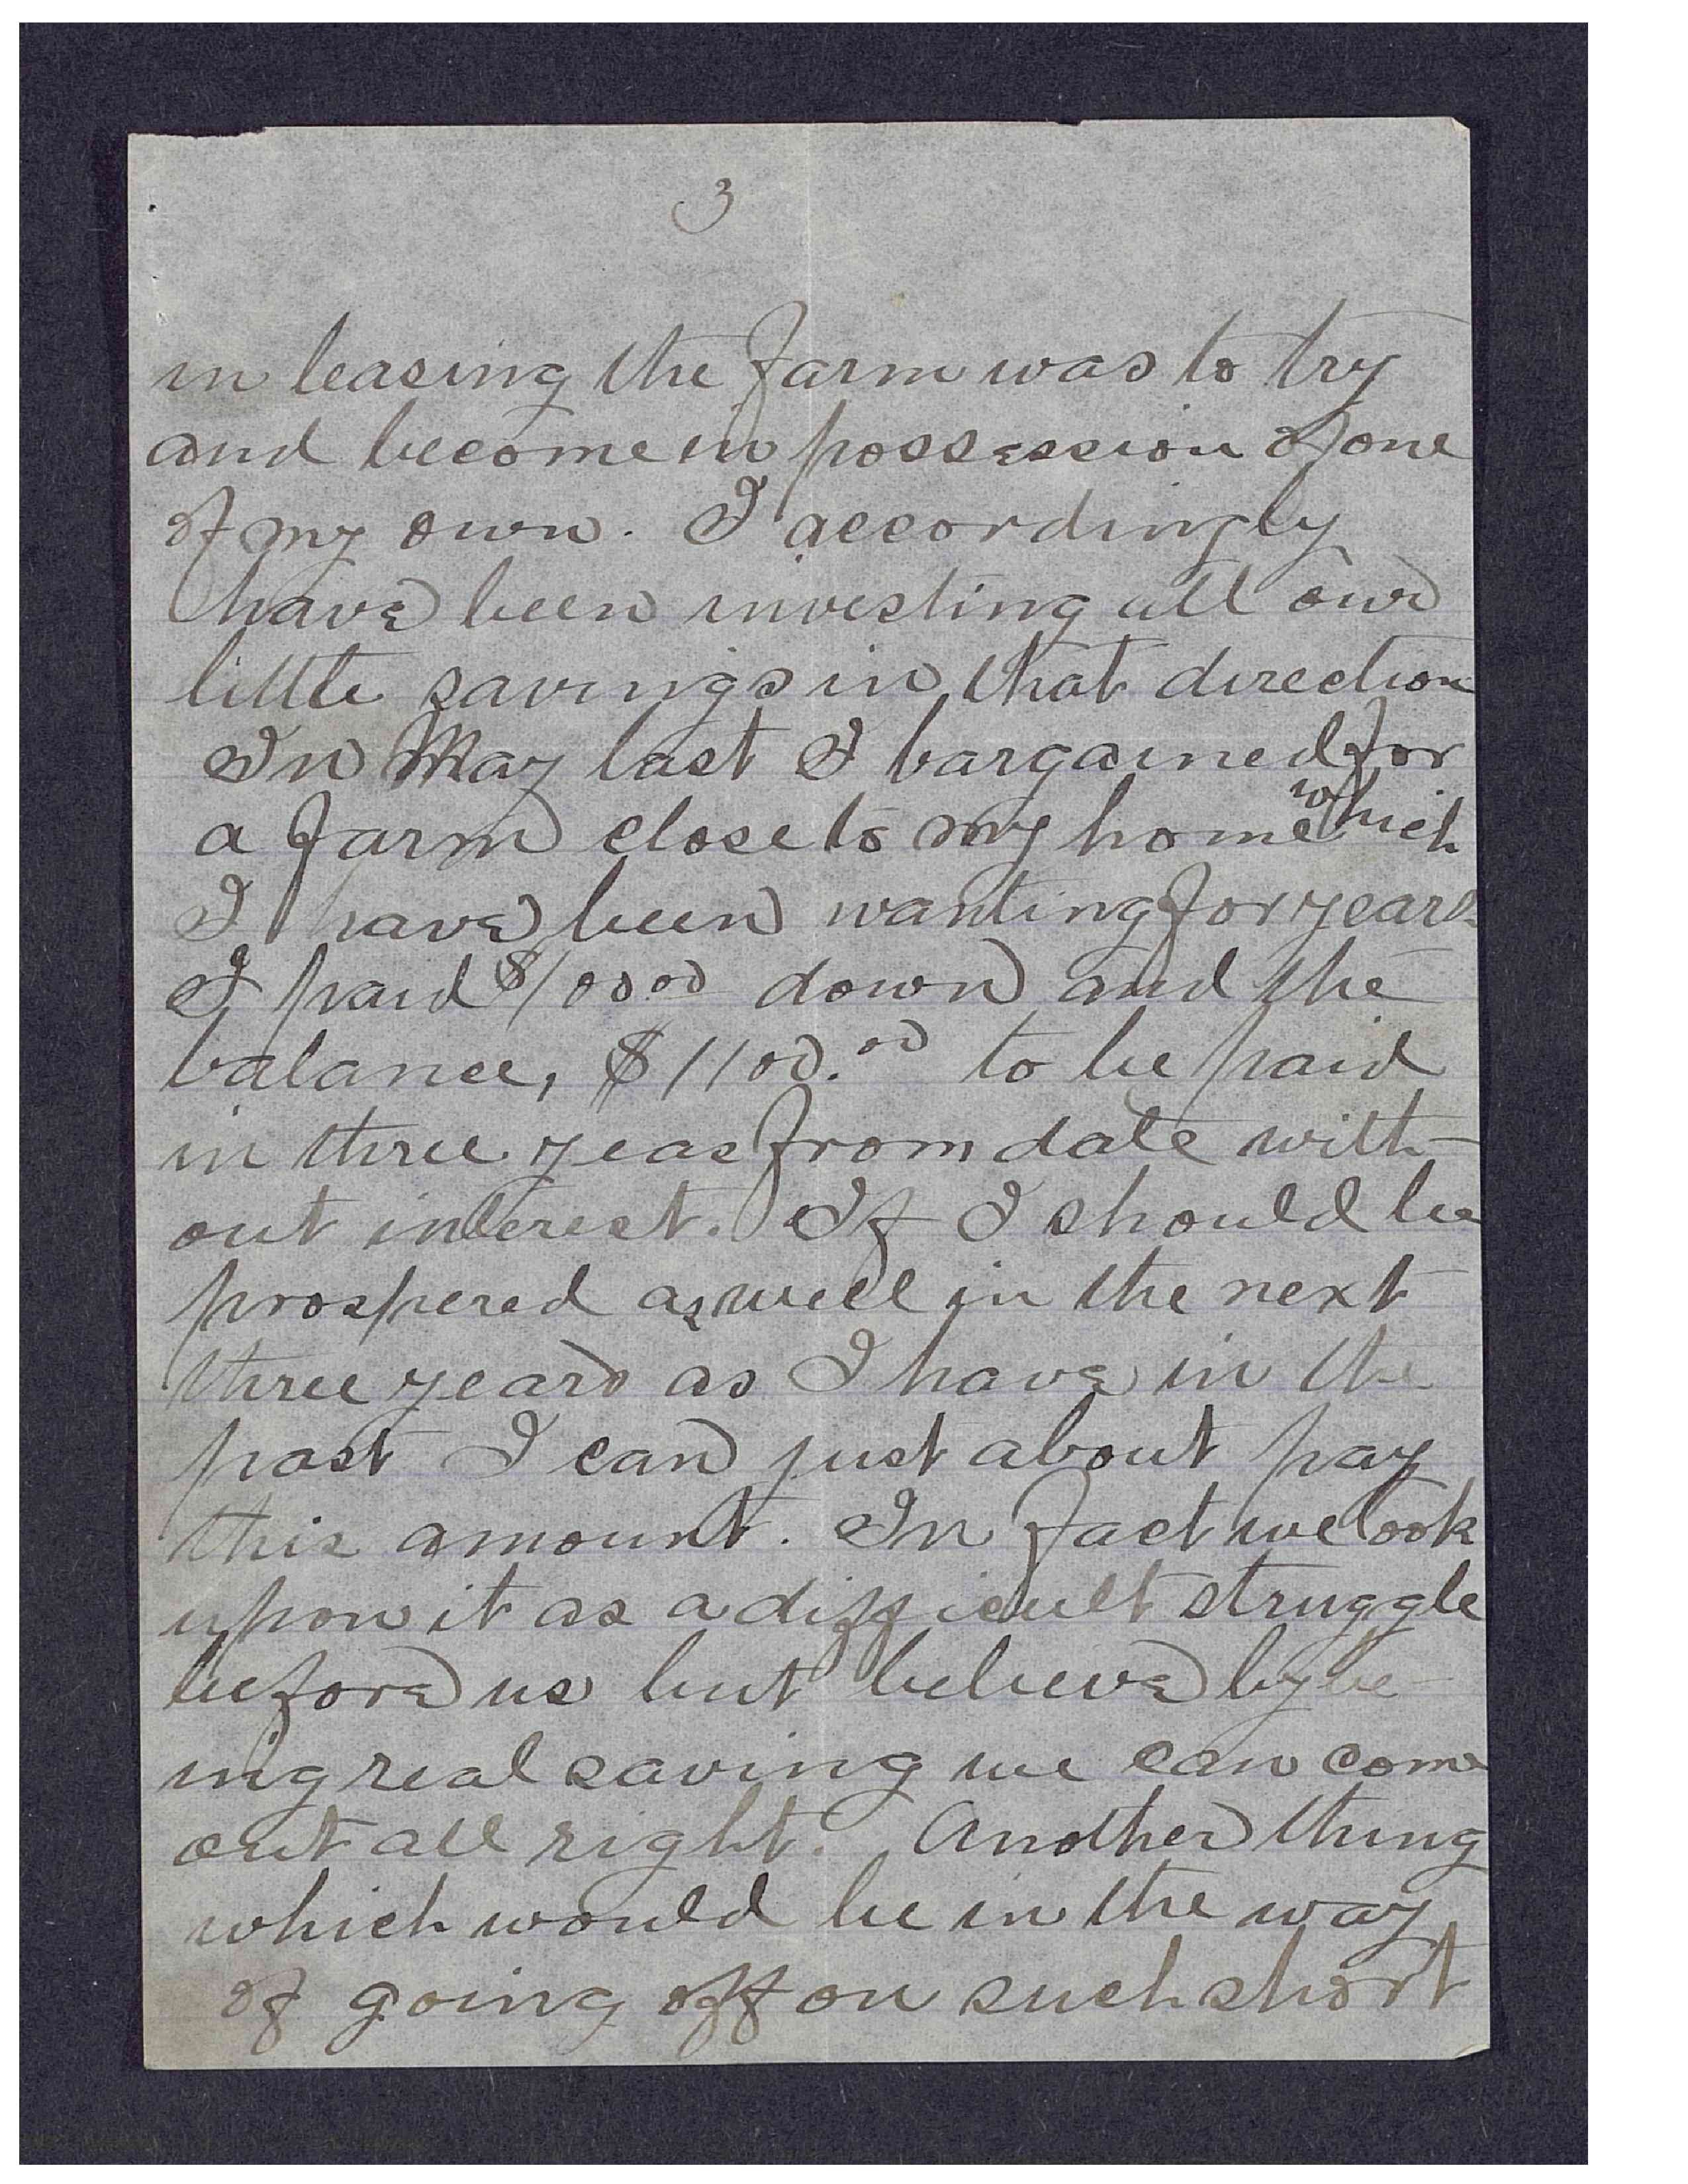 3
in leasing the farm was to try
and become in possession of one
of my own. I accordingly
have been investing all our
little savings in that direction
In May last I bargained for
a farm close to my home which
I have been wanting for years
I paid $100.00 down and the
balance, $1100.00 to be paid
in three yeas from date with-
out interest. If I should be
prospered as well in the next
three years as I have in the
past I can just about pay
this amount. In fact we look
upon it as a difficult struggle
before us but believe by be-
ing real saving we can come
out all right. Another thing
which would be in the way
of going off on such short